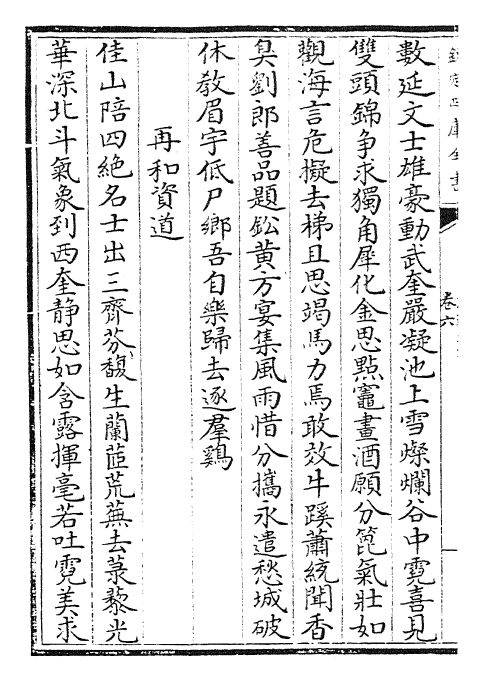 欽定四庫全書
卷六
數延文士雄豪動武奎嚴凝池上雪燦爛谷中霓喜見
雙頭錦争求獨角犀化金思點竈畫酒願分篦氣壯如
觀海言危擬去梯且思竭馬力焉敢效牛蹊蕭統聞香
臭劉郎善品題鉛黄方宴集風雨惜分攜永遣愁城破
休教眉宇低尸鄉吾自樂歸去逐羣鷄
再和資道
佳山陪四絶名士出三齊芬馥生蘭茝荒蕪去菉藜光
華深北斗氣象到西奎静思如含露揮毫若吐霓美求